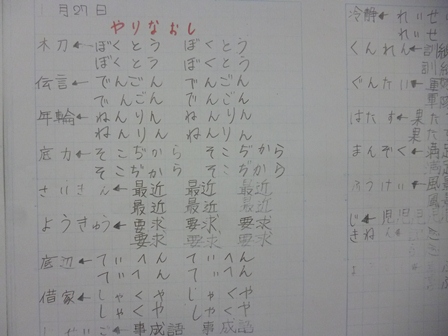 月27日
やりなおし
木刀←ぼくとう ぼくとう
ぼくとう ぼくとう
伝言←でんごん でんごん
でんごん でんごん
年輪←ねんりん ねんりん
ねんりん ねんりん
底力←そこぢから そこぢから
そこぢから そこぢから
さいきん←最近 最近 最近
最近 最近 最近
ようきゅう←要求 要求 要求
要求 要求 要求
底辺←ていへん ていへん
ていへん ていへん
借家←しゃくや しゃくや
しゃくや しゃくや
事成語 事成語
冷静←れいせ
れいせ
くんれん←訓
訓
ぐんたい←軍
軍
はたす←果た
果た
まんぞく←満
満
ふうけい←風
風